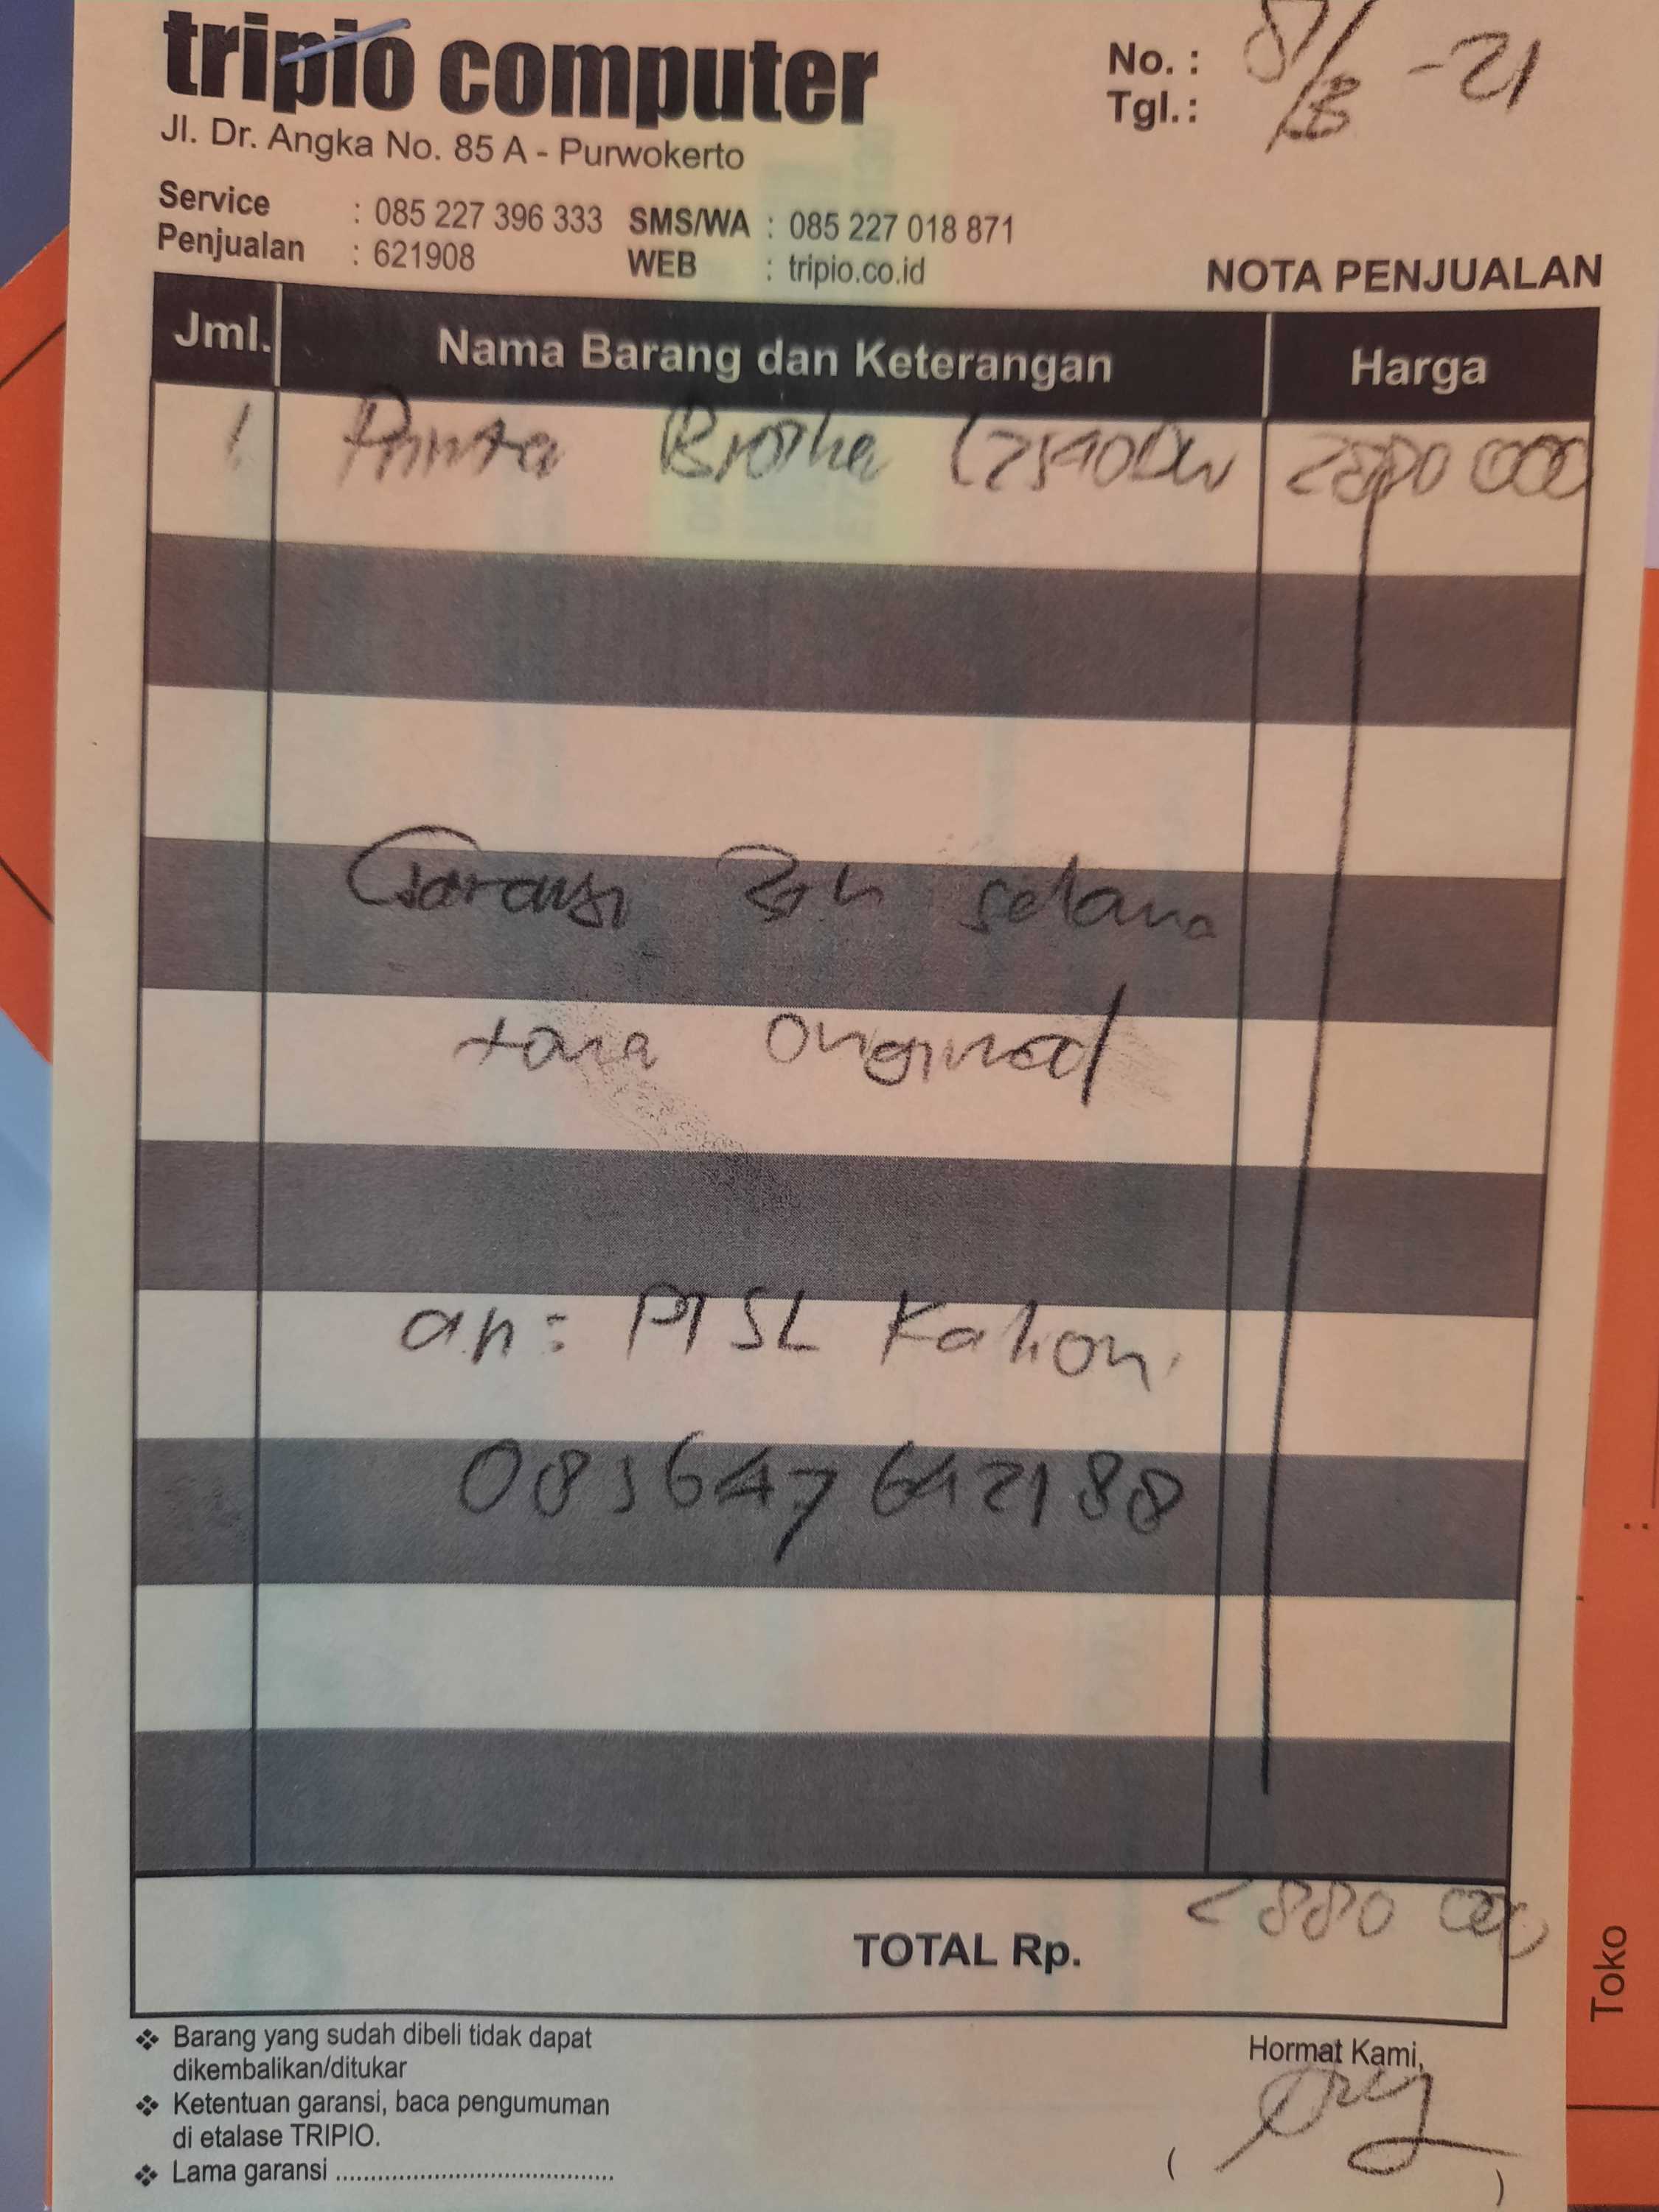 tripio computer
Jl. Dr. Angka No. 85 A - Purwokerto
No. :
Tgl. : 8/ -21
Service : 085 227 396 333 SMS/WA : 085 227 018 871
Penjualan : 621908 WEB : tripio.co.id
NOTA PENJUALAN
Jml. Nama Barang dan Keterangan Harga
1 Printer Brother L2540DW 2880 000
Garansi 3th selama
tona Original
an: PTSL
TOTAL Rp. 2880 000
Barang yang sudah dibeli tidak dapat
dikembalikan/ditukar
Ketentuan garansi, baca pengumuman
di etalase TRIPIO.
Lama garansi ........................................
Hormat Kami,
( )
Toko :